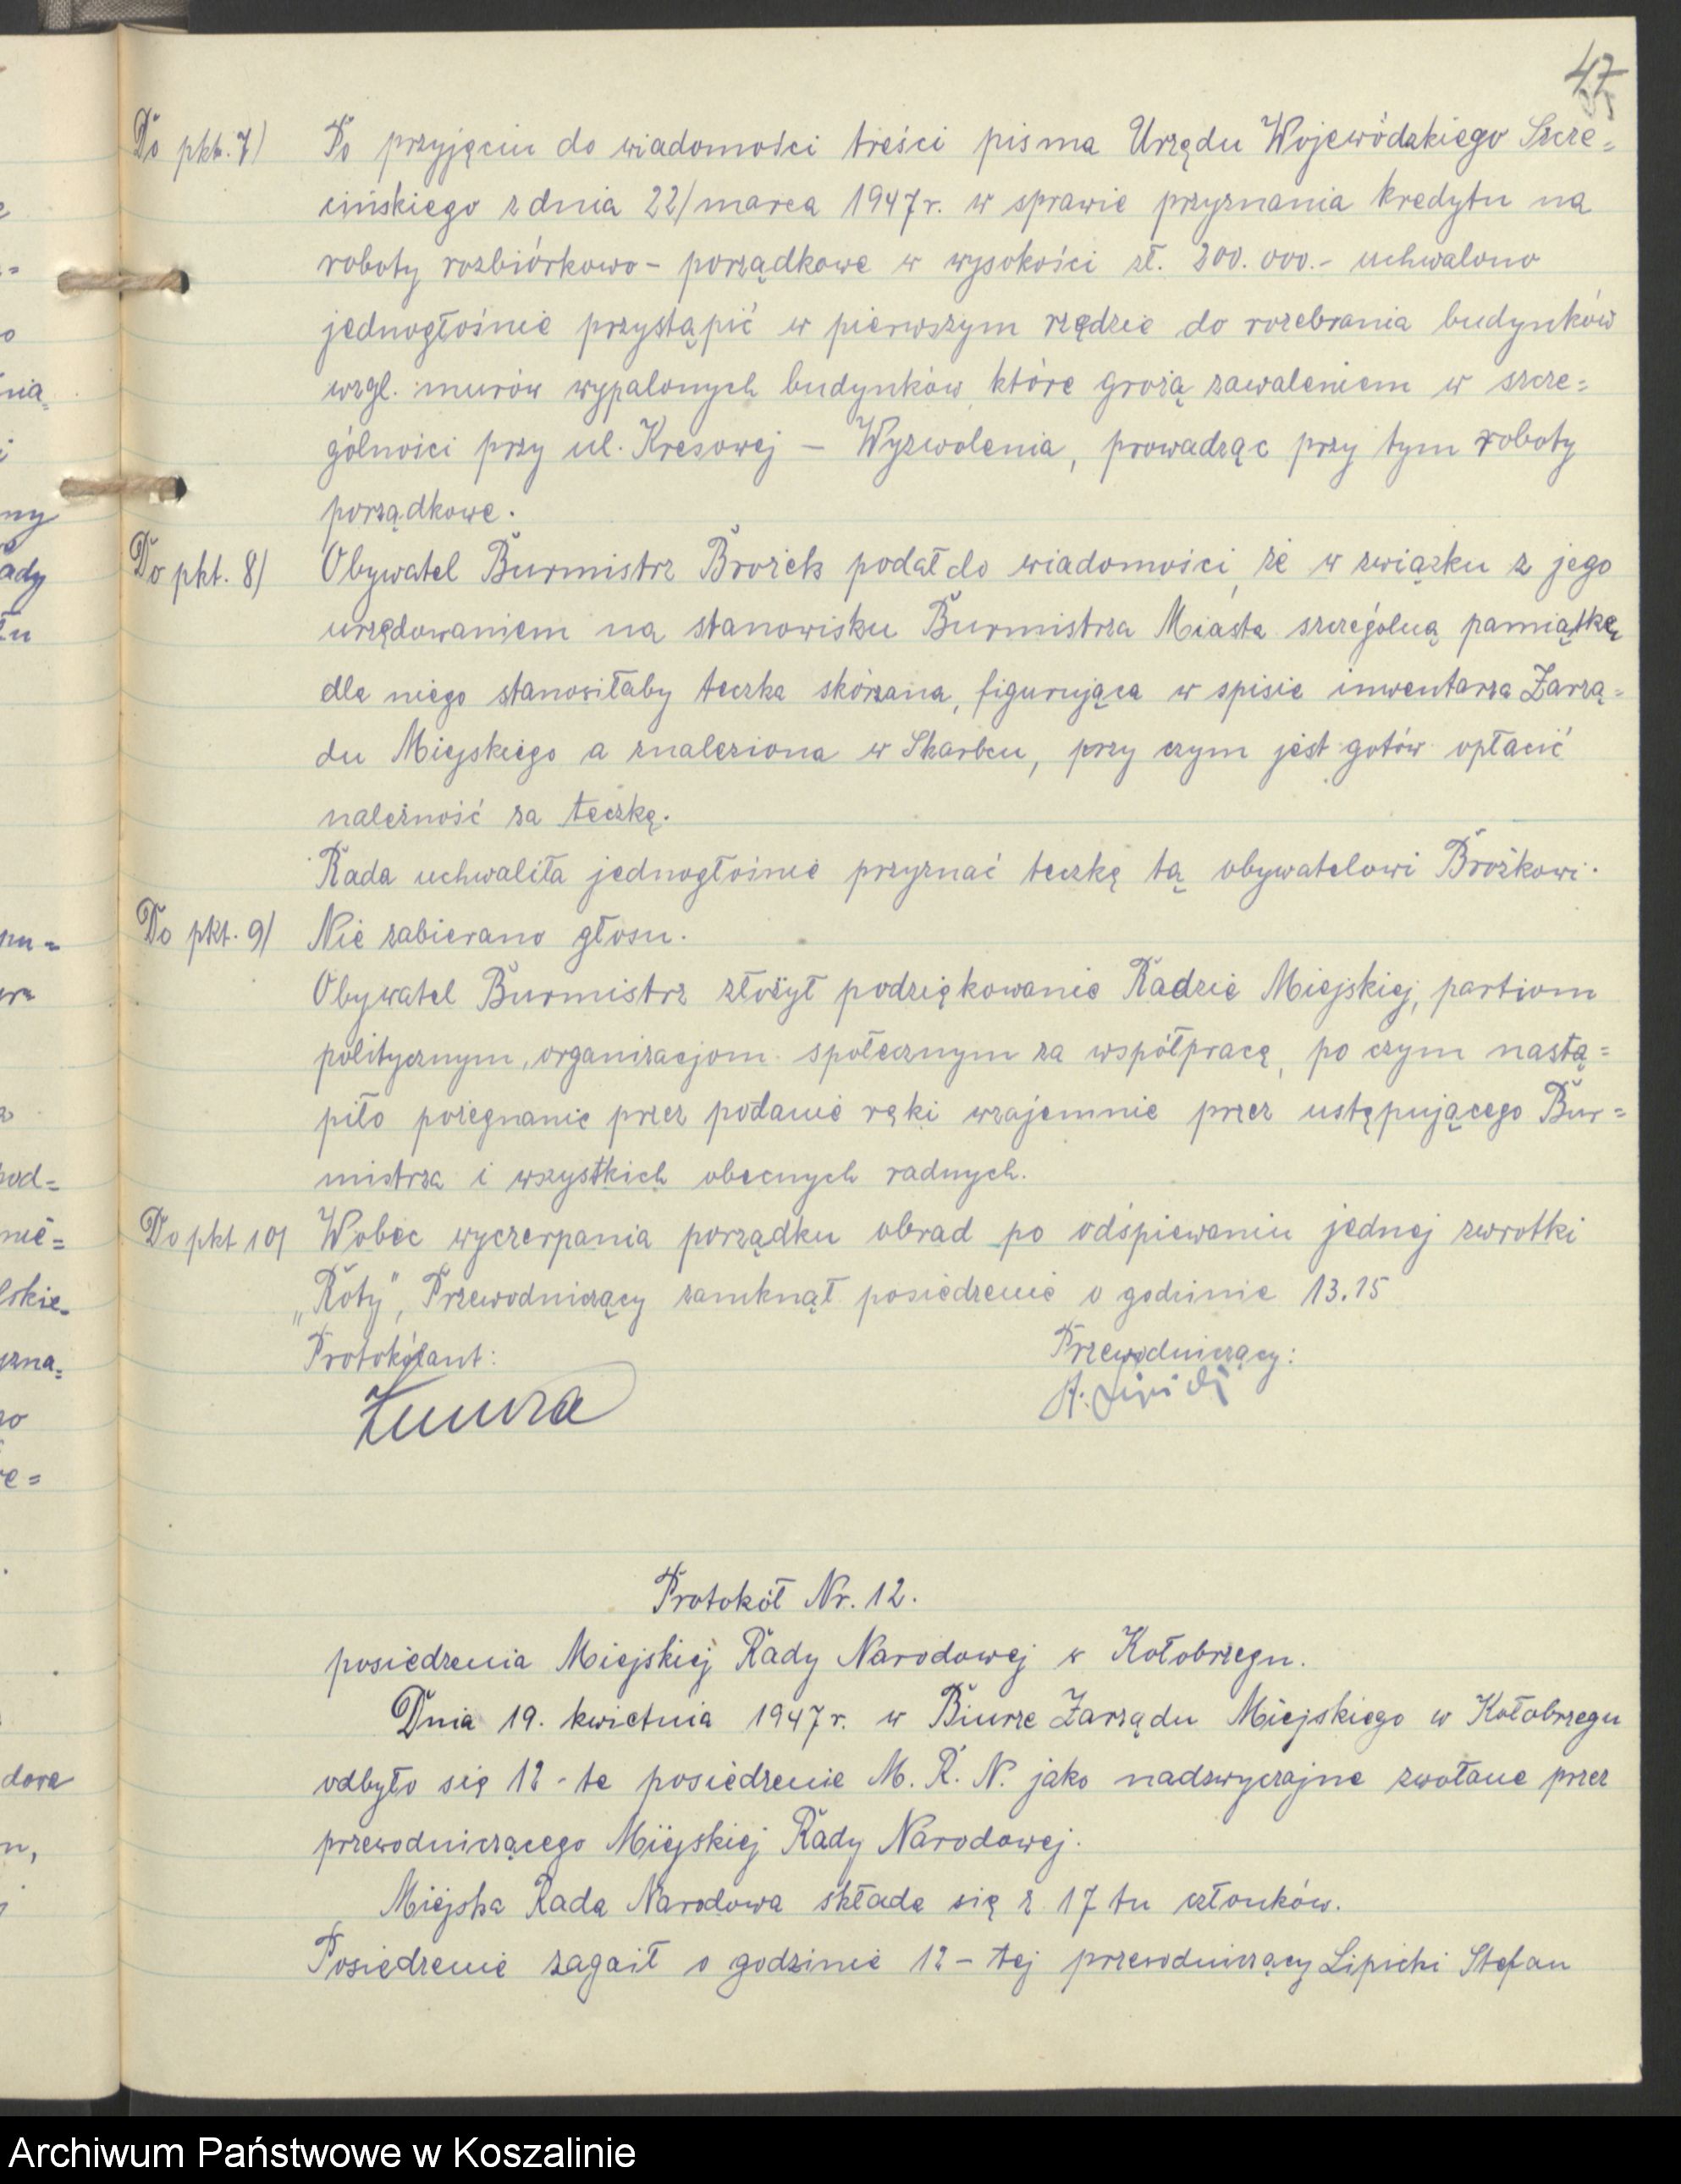 47
Do pkt. 7/ Po przyjęciu do wiadomości treści pisma Urzędu Wojewódzkiego Szcze=
cińskiego z dnia 22/marca 1947 r. w sprawie przyznania kredytu na
roboty rozbiórkowo - porządkowe w wysokości zł. 300.000.- uchwalono
jednogłośnie przystąpić w pierwszym rzędzie do rozebrania budynków
wzgl. murów wypalonych budynków, które grożą zawaleniem w szcze=
gólności przy ul. Kresowej - Wyzwolenia, prowadząc przy tym roboty
porządkowe.
Do pkt. 8/ Obywatel Burmistrz Brożek podał do wiadomości, że w związku z jego
urzędowaniem na stanowisku Burmistrza Miasta szczególną pamiątkę
dla niego stanowiłaby teczka skórzana, figurująca w spisie inwentarza Zarzą=
du Miejskiego a znaleziona w Skarbcu, przy czym jest gotów opłacić
należność za teczkę.
Rada uchwaliła jednogłośnie przyznać teczkę tą obywatelowi Brożkowi.
Do pkt. 9/ Nie zabierano głosu.
Obywatel Burmistrz złożył podziękowanie Radzie Miejskiej, partiom
politycznym, organizacjom społecznym za współpracę, po czym nastą=
piło pożegnanie przez podanie ręki wzajemnie przez ustępującego Bur=
mistrza i wszystkich obecnych radnych.
Do pkt 10/ Wobec wyczerpania porządku obrad po odśpiewaniu jednej zwrotki
„Roty", Przewodniczący zamknął posiedzenie o godzinie 13.15
Protokólant: Przewodniczący:
Protokół Nr. 12.
posiedzenia Miejskiej Rady Narodowej w Kołobrzegu.
Dnia 19. kwietnia 1947 r. w Biurze Zarządu Miejskiego w Kołobrzegu
odbyło się 12-te posiedzenie M. R. N. jako nadzwyczajne zwołane przez
przewodniczącego Miejskiej Rady Narodowej.
Miejska Rada Narodowa składa się z 17 tu członków.
Posiedzenie zagaił o godzinie 12-tej przewodniczący Lipicki Stefan
Archiwum Państwowe w Koszalinie